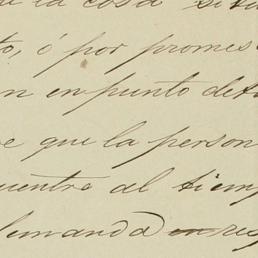 la cosa situ
to, ó por promes
n en punto det
e que la person
uentre al tiemp
demanda en res